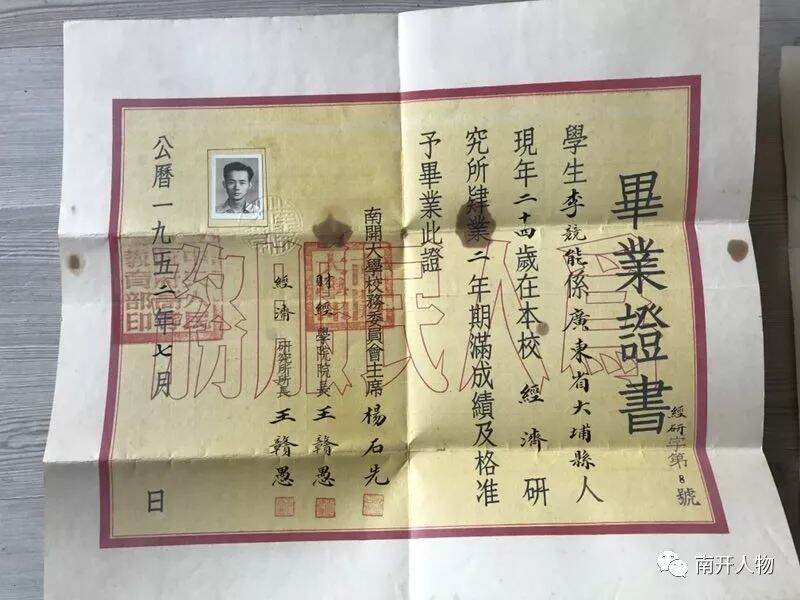 畢業證書
經研字第8號
學生李競能係廣東省大埔縣人
現年二十四歲在本校經濟研
究所肄業二年期滿成績及格准
予畢業此證
南開大學校務委員會主席楊石先
財經學院院長王贛愚
經濟研究所所長王贛愚
公曆一九五二年七月 日
為人民服務
南开人物